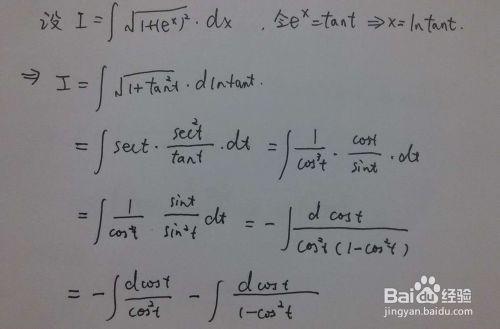 设 I = ∫ √(1+(eˣ)²) · dx . 令eˣ = tant ⇒ x = lntant.
⇒ I = ∫ √(1+tan²t) · dlntant.
= ∫ sect · sec²t/tant · dt = ∫ 1/cos³t · cost/sint · dt
= ∫ 1/cos²t sint/sin²t dt = - ∫ d cost/cos²t (1-cos²t)
= - ∫ dcost/cos²t - ∫ dcost/1-cos²t
Baidu经验
jingyan.baidu.com